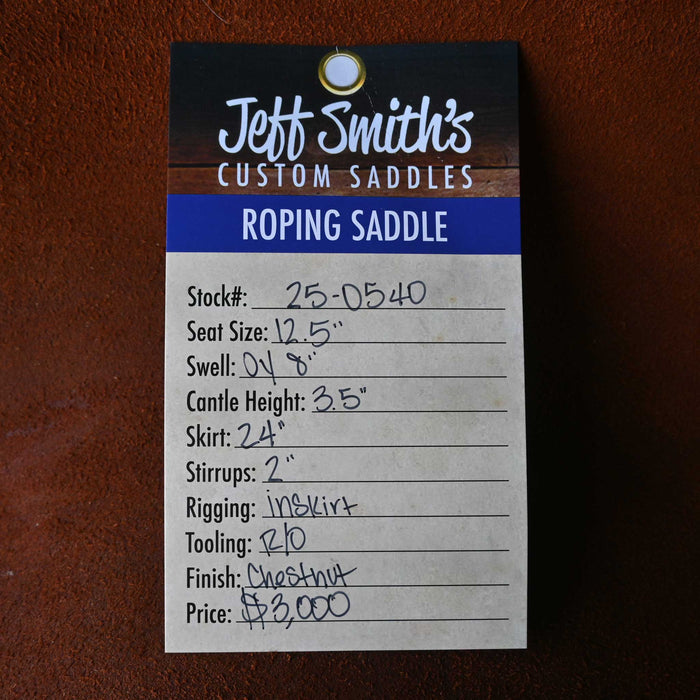 Jeff Smith's
CUSTOM SADDLES
ROPING SADDLE
Stock#: 25-0540
Seat Size: 12.5"
Swell: Oy 8"
Cantle Height: 3.5"
Skirt: 24"
Stirrups: 2"
Rigging: inskirt
Tooling: R/O
Finish: Chestnut
Price: $3,000